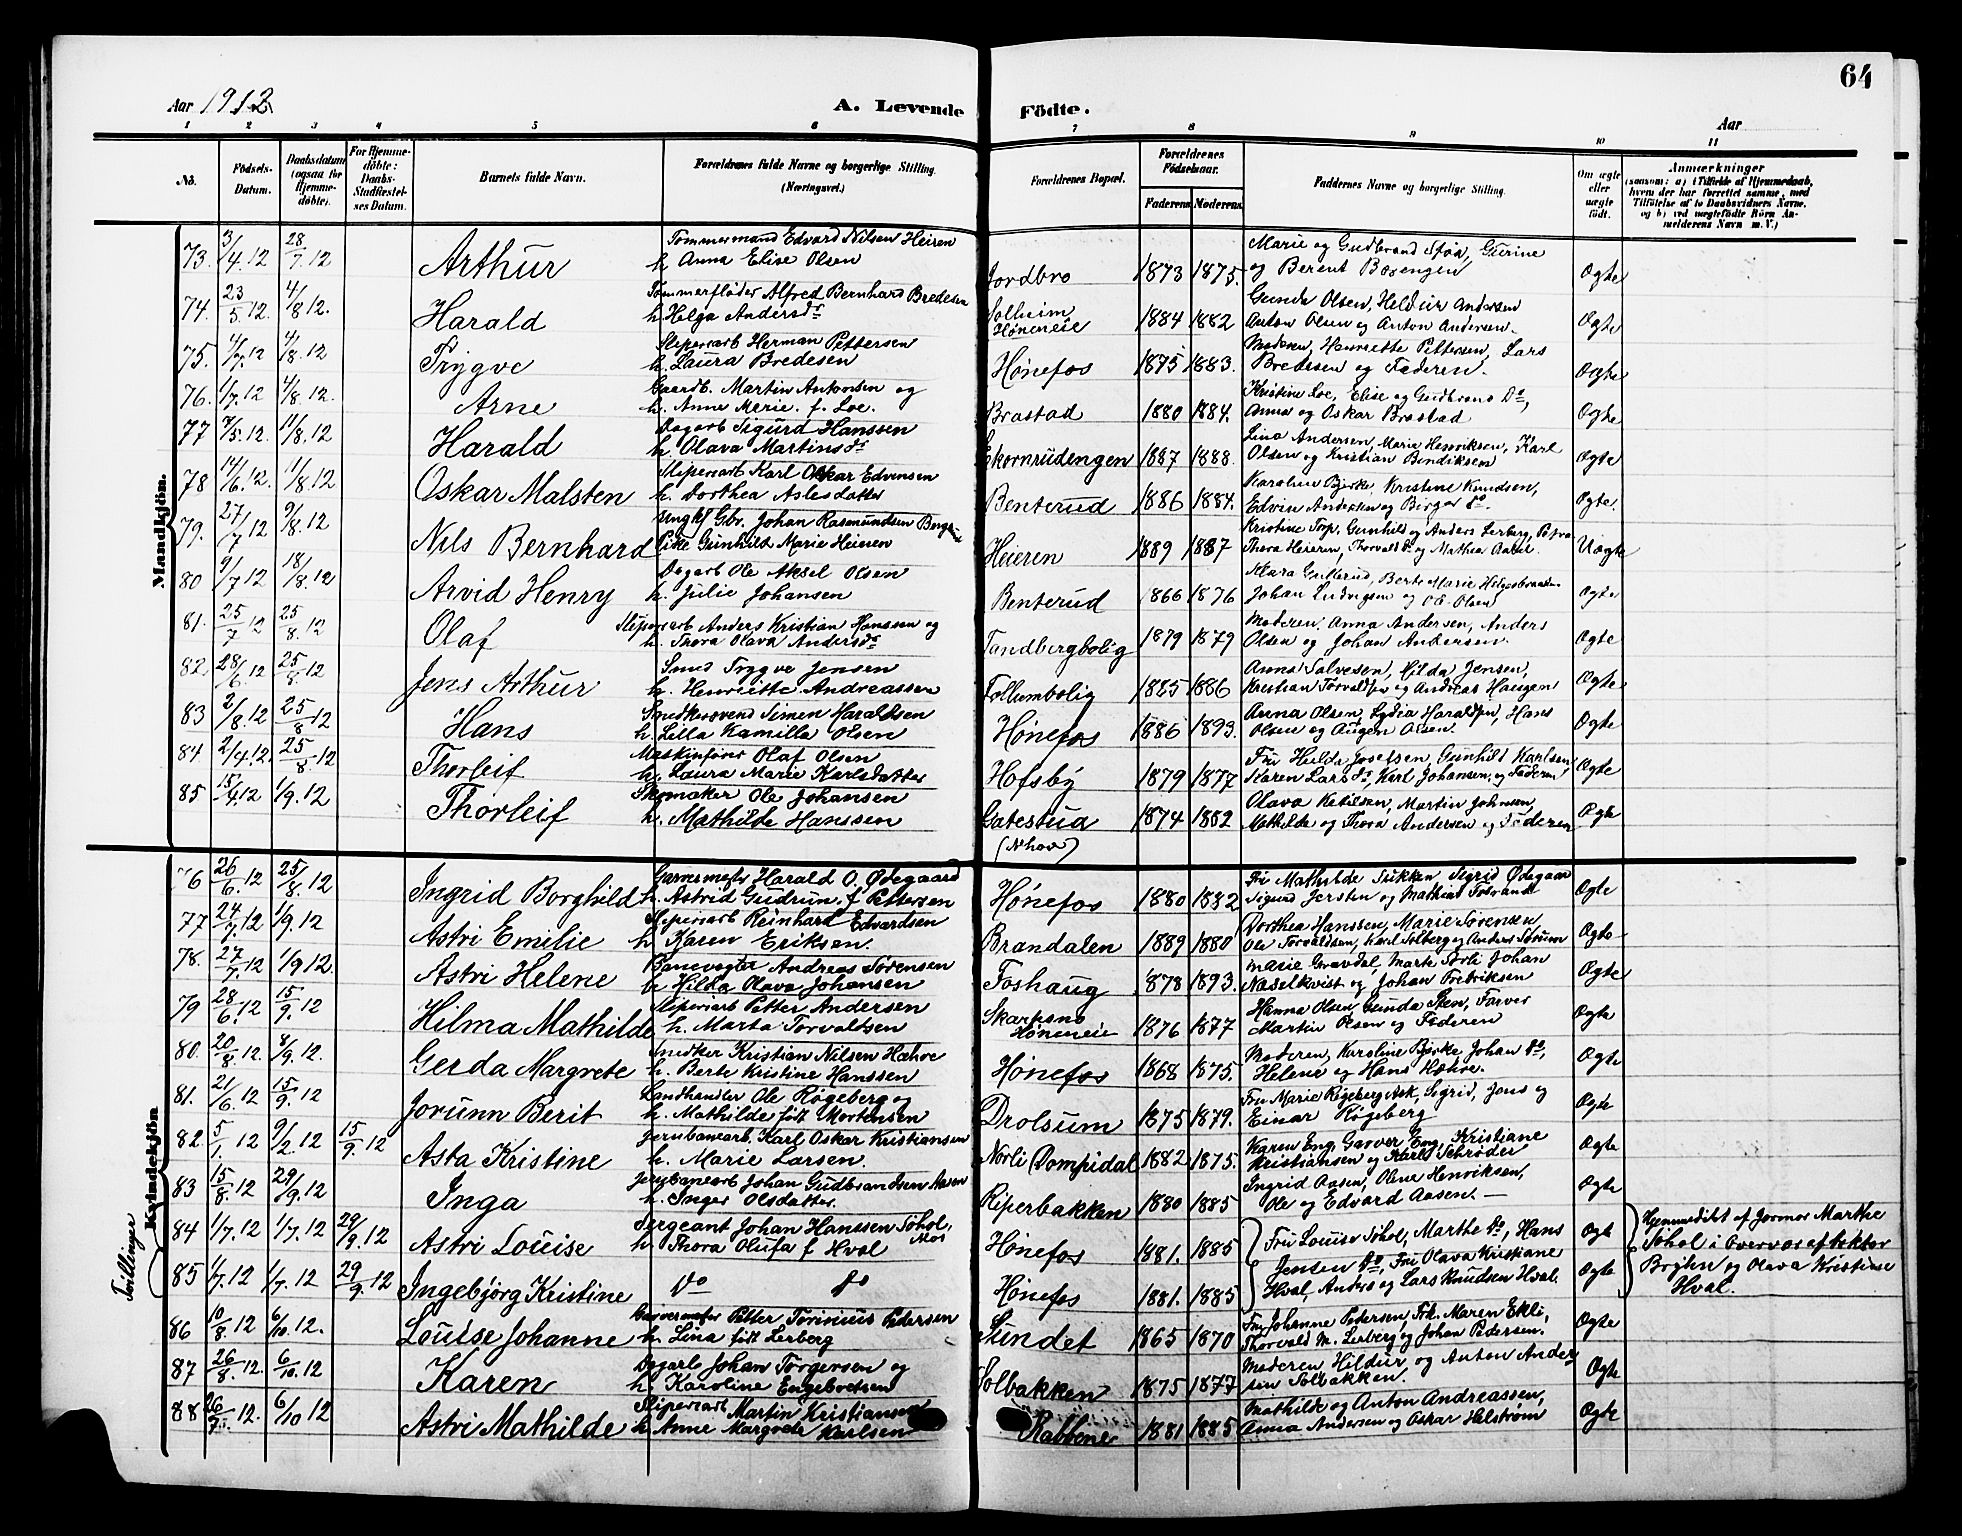 64
Aar 1912
A. Levende Födte.
Aar
1 2 3 4 5 6 7 8 9 10 11
No.
Födsels-Datum.
Daabsdatum (ogsaa for Hjemme-døbte).
For Hjemme-döbte: Daabs-Stadfæstel-ses Datum.
Barnets fulde Navn.
Forældrenes fulde Navne og borgerlige Stilling. (Næringsvei.)
Forældrenes Bopæl.
Forældrenes Födselsaar.
Faderens Moderens
Faddernes Navne og borgerlige Stilling.
Om ægte eller uægte födt.
Anmærkninger
(saasom: a) i Tilfælde af Hjemmedaab, hvem der har forrettet samme, med Tilföielse af to Daabsvidners Navne. og b) ved uægtefödte Börn An-melderens Navn m. V.)
Mandkjön.
73. 3/4.12 28/7.12 Arthur Tømmermand Edvard Nilsen Heiren
h. Anna Elise Olsen Jordbro 1873 1875. Marie og Gudbrand Sføa, Gurine
og Berent Børengen Ægte
74. 23/5.12. 4/8 12. Harald Tømmerfløder Alfred Bernhard Bredesen
h. Helga Andersdr Solheim Hønemeie 1884 1882 Gunda Olsen, Hildur Andersen
Anton Olsen og Anton Andersen. Ægte
75. 4/7.12 4/8.12 Trygve Sliperiarb Herman Pettersen
h. Laura Bredesen Hønefos 1875 1883. Moderen, Henriette Pettersen, Lars
Bredesen og Faderen. Ægte
76. 1/7.12 4/8.12. Arne Gaardb. Martin Antonsen og
h. Anne Marie. f. Loe. Brastad 1880 1884. Kristine Loe, Elise og Gudbrand Do,
Anna og Oskar Brastad Ægte
77 7/5.12. 11/8.12 Harald Dagarb Sigurd Hanssen
h. Olava Martinsdr Ekornrudengen 1887 1888. Lina Andersen, Marie Henriksen, Karl
Olsen og Kristian Bendiksen Ægte
78 14/6.12. 11/8.12 Oskar Malsten Sliperiarb Karl Oskar Edvinsen
h. Dorthea Aslesdatter Benterud 1886 1884. Karoline Bjerke. Kristine Knudsen,
Edvin Andersen og Birger do. Ægte.
79. 27/7 12 9/8.12 Nils Bernhard Ungkl Gbr. Johan Rasmundsen
Pike Gunhild Marie Heieren Heieren 1889 1887 Kristine Trp. Gunhild og Anders Lerberg, Petra
Thora Heieren, Thorvald do og Mathea Uægte
80 9/7 12 18/8.12 Arvid Henry Dagarb Ole Aksel Olsen
h. Julie Johansen Benterud 1866 1876 Klara Gullerud, Berte Marie
Johan Ludvigsen og O.E. Olsen Ægte
81. 25/7 12 25/8.12 Olaf Sliperiarb Anders Kristian Hanssen og
h. Thora Olava Andersdr Tandbergbolig 1879 1879 Moderen. Anna Andersen, Anders
Olsen og Johan Andersen. Ægte
82. 28/6 12 25/8 12 Jens Arthur Smed Trygve Jensen
h. Henriette Andreassen Follumbolig 1885 1886 Anna Salvesen, Hilda Jensen,
Kristian Torvaldsen og Andreas Haugen Ægte
83 2/8.12 25/8 12 Hans Snedkersvend Simen Haraldsen
h. Lilla Kamilla Olsen Hønefos 1886 1893. Anna Olsen, Lydia Haraldsen, Hans
Olsen og Augen Olsen. Ægte
84 2/4.12. 25/8.12 Thorleif Maskinfører Olaf Olsen
h. Laura Marie Karlsdatter Hofsby 1879 1877 Fru Hilda Josefsen, Gunhild Karlsen
Karen Larsdr, Karl Johansen, og Faderen Ægte
85 15/4.12 1/9.12 Thorleif Skomaker Ole Johansen
h. Mathilde Hanssen Gatestua (Nhov) 1874 1882 Olava Ketilsen, Martin Johnsen,
Mathilde og Thora Andersen og Faderen Ægte
Kvindekjön
76 26/6.12 25/8 12 Ingrid Borghild Garvermester Harald O. Ødegaard
h. Astrid Gudrun. f Pettersen Hønefos 1880 1882 Fru Mathilde Sukken Sigrid Ødegaard
Sigurd Jersten og Mathias Ægte
77 24/7 12 1/9.12 Astri Emilie Sliperiarb Reinhard Edvardsen
h. Karen Eriksen. Brandalen 1889 1880 Dorthea Hanssen, Marie Sørensen
Ole Torvaldsen, Karl Solberg og Anders Sørum Ægte
78. 27/7.12 1/9 12. Astri Helene Banevogter Andreas Sørensen
h. Hilda Olava Johansen Foshaug 1878 1893. Marie Gravdal, Marte Sørli Johan
Naselkvist og Johan Fredriksen Ægte
79 28/6.12 15/9.12 Hilma Mathilde Sliperiarb Petter Andersen
h. Marta Torvaldsen Skarpsno Hønemeie 1876 1877 Hanna Olsen, Gunda Sten, Farver
Martin Olsen og Faderen Ægte
80. 20/8.12. 8/9.12. Gerda Margrete Snedker Kristian Nilsen Hæhre
h. Berte Kristine Hanssen Hønefos 1868 1875. Moderen, Karoline Bjerke, Johan do,
Helene og Hans Hæhre. Ægte
81. 21/6.12 15/9.12 Jorunn Berit Landhandler Ole Røgeberg og
h. Mathilde født Mortensen Drolsum 1875 1879. Fru Marie Røgeberg Ask, Sigrid, Jens og
Einar Røgeberg Ægte
82. 5/1. 12 9/2.12 15/9.12 Asta Kristine Jernbanearb. Karl Oskar Kristiansen
h. Marie Larsen. Norli Pompidal 1882 1875. Karen Eng, Garver Eng, Kristiane
Kristiansen og Karl Schrøder Ægte
83 15/8 12 29/9.12 Inga Jernbanearb Johan Gudbrandsen Aasen
h. Inger Olsdatter. Riperbakken 1880 1885 Ingrid Aasen, Olene Henriksen,
Ole og Edvard Aasen. — Ægte
Tvillinger
84 1/7.12 1/7.12 29/9.12 Astri Louise Sergeant Johan Hanssen Søhol,
h. Thora Olufa f Hval Hønefos 1881. 1885 Fru Louise Søhol, Marthe do, Hans
Jensen do, Fru Olava Kristiane Ægte
Hjemmedøbt af Jormor Marthe
Søhol i Overvær af
og Olava Kristiane
Hval.
85 1/7.12 1/7.12 29/9.12 Ingebjørg Kristine do do Hønefos 1881. 1885 Hval, Anders og Lars Knudsen Hval. Ægte
86 10/8.12 6/10.12. Louise Johanne Garvermester Petter Torinius Pedersen
h. Lina født Lerberg Sundet 1865 1870 Fru Johanne Petersen, Frk. Maren Ekli,
Thorvald M. Lerberg og Johan Pedersen. Ægte
87 26/8.12. 6/10.12 Karen Dagarb Johan Torgersen og
h. Karoline Engebretsen Solbakken 1875 1877 Moderen Hildur, og Anton Ander
sen Solbakken. Ægte
88 26/7.12. 6/10 12 Astri Mathilde Sliperiarb Martin Kristiansen
h. Anne Margrete Karlsen Rabbene 1881 1885 Mathilde og Anton Andreassen,
Anna Andersen og Oskar Helstrøm Ægte